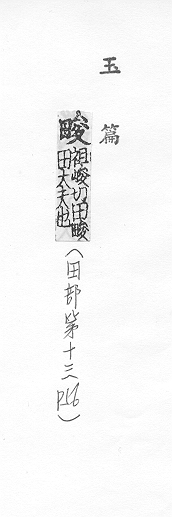 玉篇
畯祖峻切田畯田大夫也(田部第十三P16)